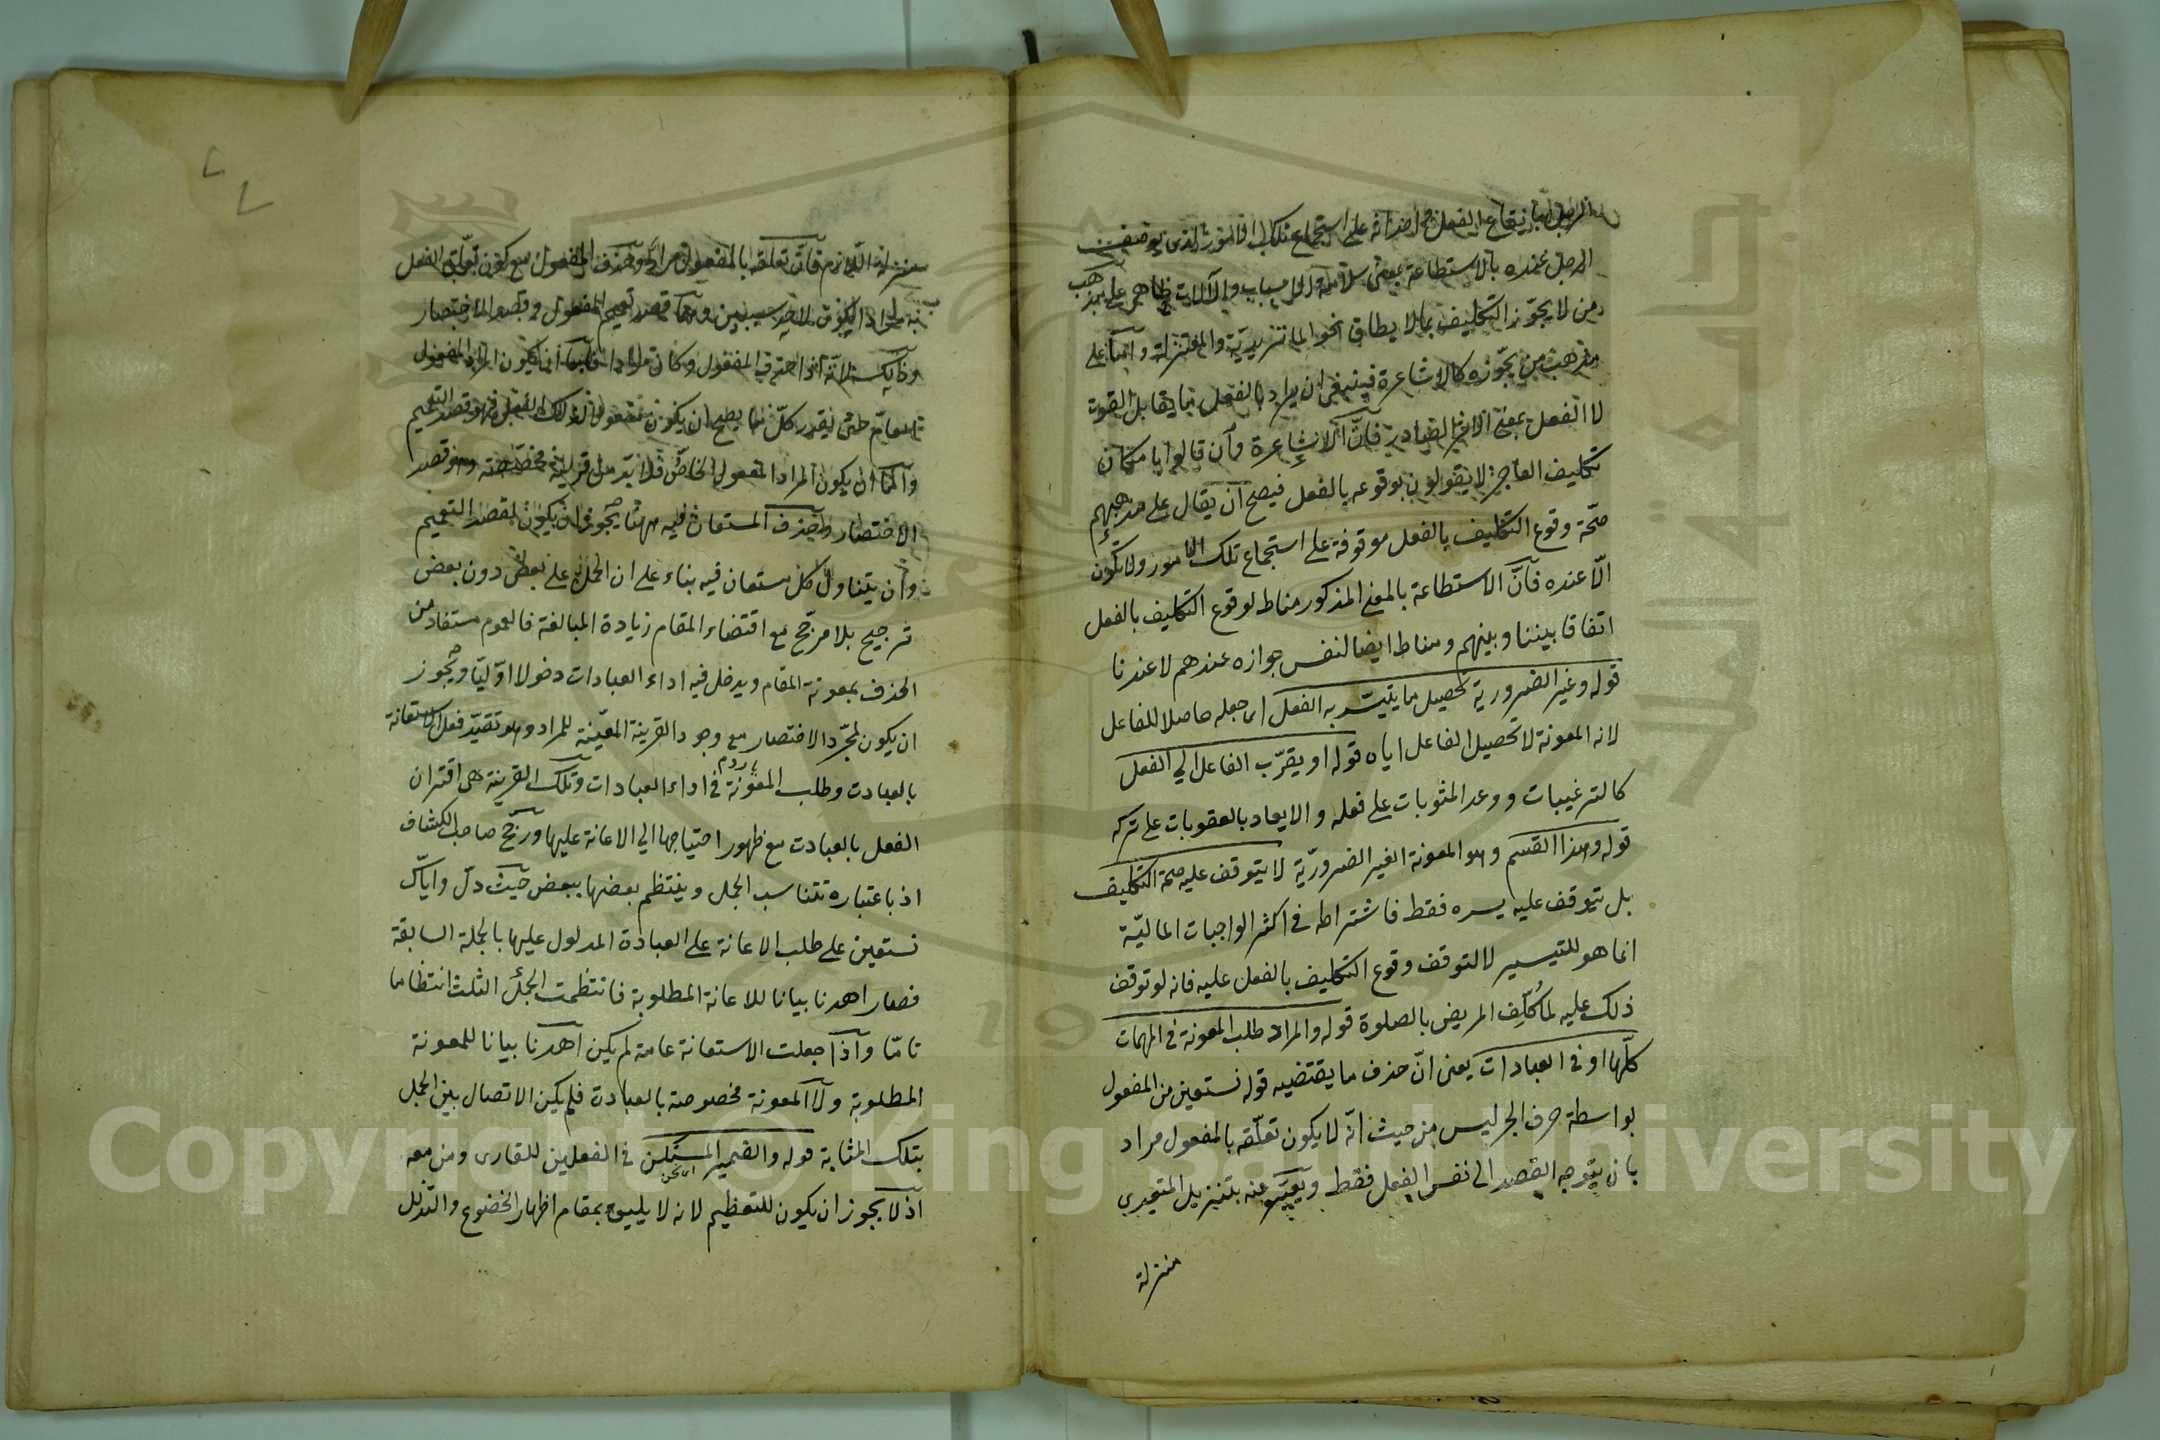 بايقاع الفعل واحداثه على استجماع تلك الامور الذي يوصف
الرجل عنده بالاستطاعة بمعنى سلامة الاسباب والآلات ظاهر على مذهب
من لا يجوّز التكليف بما لا يطاق نحو الماتريديّة والمعتزلة وامّا على
مذهب من يجوّزه كالاشاعرة فينبغي ان يراد بالفعل ما يقابل القوت
لا الفعل بمعنى الاثر الصادر فانّ الاشاعرة وان قالوا بامكان
تكليف العاجز لا يقولون بوقوعه بالفعل فيصح ان يقال على مذهبهم
صحّة وقوع التكليف بالفعل موقوفة على استجماع تلك الامور ولا يكون
الّا عنده فانّ الاستطاعة بالمعنى المذكور مناط لوقوع التكليف بالفعل
اتفاقا بيننا وبينهم ومناط ايضا لنفس جوازه عندهم لا عندنا
قوله وغير الضرورية تحصيل ما يتيسر به الفعل اى جعله حاصلا للفاعل
لانه المعونة لا تحصيل الفاعل اياه قوله او يقرّب الفاعل الي الفعل
كالترغيبات ووعد المثوبات على فعله والايعاد بالعقوبات على تركه
قوله وهذا القسم وهو المعونة الغير الضروريّة لا يتوقف عليه صحة التكليف
بل يتوقف عليه يسره فقط فاشتراطه في اكثر الواجبات الماليّة
انما هو للتيسير لا لتوقف وقوع التكليف بالفعل عليه فانه لو توقف
ذلك عليه لما كُلّف المريض بالصلوة قوله والمراد طلب المعونة في المهمات
كلّها او في العبادات يعنى انّ حذف ما يقتضيه قوله نستعين من المفعول
بواسطة حرف الجر ليس من حيث انّه لا يكون تعلّقه بالمفعول مراد
بان يتوجه القصد الى نفس الفعل فقط ويعبّر عنه بتنزيل المتعدى
منزلة
منزلة اللازم فانّ تعلقه بالمفعول مراد وحذف المفعول مع كون تعلّق الفعل
به مرادا يكون لاحد سببين وهما قصد تعميم المفعول وقصد الاختصار
وذلك لانّه اذا حذف المفعول وكان مرادا فامّا ان يكون المراد المفعول
العامّ حتى يقدر كلّ ما يصح ان يكون مفعولا لذلك الفعل فهو قصد التعميم
وامّا ان يكون المراد المفعول الخاصّ فلا بدّ من قرينة مخصّصة وهو قصد
الاختصار وحذف المستعان فيه ههنا يجوز ان يكون لقصد التعميم
وان يتناول كل مستعان فيه بناء على ان الحمل على بعض دون بعض
ترجيح بلا مرجّح مع اقتضاء المقام زيادة المبالغة فالعموم مستفاد من
الحذف بمعونة المقام ويدخل فيه اداء العبادات دخولا اوّليّا ويجوز
ان يكون لمجرّد الاختصار مع وجود القرينة المعيّنة للمراد وهو تقيّد فعل الاستعانة
بالعبادت وطلب المعونة في اداء العبادات وتلك القرينة هى اقتران
الفعل بالعبادت مع ظهور احتياجها الي الاعانة عليها ورجّح صاحب الكشاف
اذ باعتباره تتناسب الجمل وينتظم بعضها ببعض حيث دلّ واياك
نستعين على طلب الاعانة على العبادة المدلول عليها بالجملة السابقة
فصار اهدنا بيانا للاعانة المطلوبة فانتظمت الجمل الثلث انتظاما
تامّا واذا جعلت الاستعانة عامة لم يكن اهدنا بيانا للمعونة
المطلوبة ولا المعونة مخصوصة بالعبادة فلم يكن الاتصال بين الجمل
بتلك المثابة قوله والضمير المستكن في الفعلين للقارى ومن معه
اى نحن
اذ لا يجوز ان يكون للتعظيم لانه لا يليق بمقام اظهار الخضوع والتذلل
Copyright © King Saud University